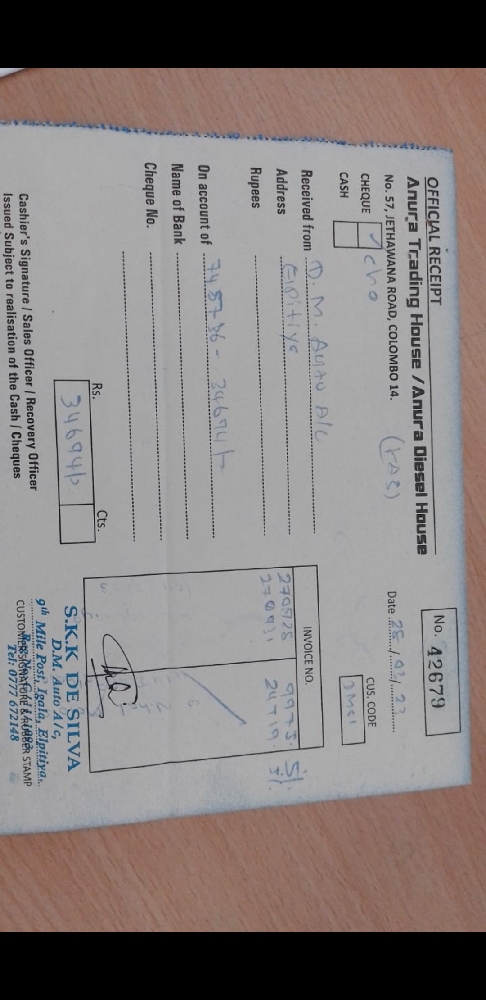 OFFICIAL RECEIPT
No. 42679
Anura Trading House / Anura Diesel House
No. 57, JETHAWANA ROAD, COLOMBO 14.
Date
CUS. CODE
CHEQUE ✓ cho
CASH
INVOICE NO.
Received from D. M. Auto A/C
Address Elpitiya
270928 9975.
Rupees
On account of
Name of Bank
Cheque No.
Rs. Cts.
34694/-
S.K.K DE SILVA
D.M. Auto A/c,
9th Mile Post, Igala, Elpitiya.
CUSTOMER SIGNATURE & RUBBER STAMP
Tel: 0777 672148
Cashier's Signature / Sales Officer / Recovery Officer
Issued Subject to realisation of the Cash / Cheques